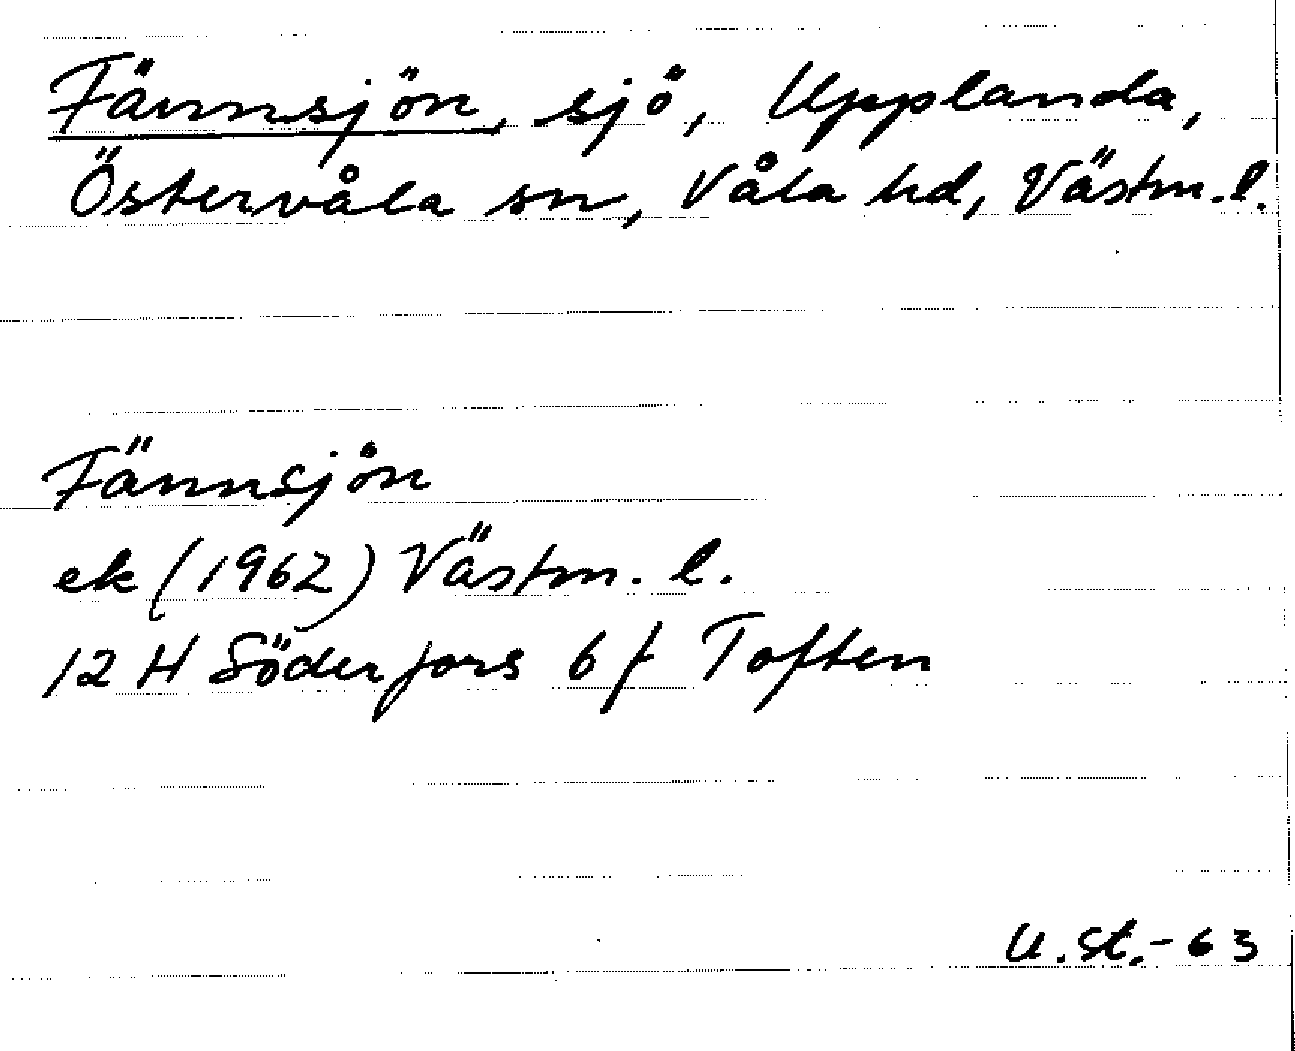 Fännsjön, sjö, Upplanda,
Östervåla sn, Våla hd, Västm. l.
Fännsjön
ek (1962) Västm. l.
12 H Söderfors 6 f Toften
U. St. - 63